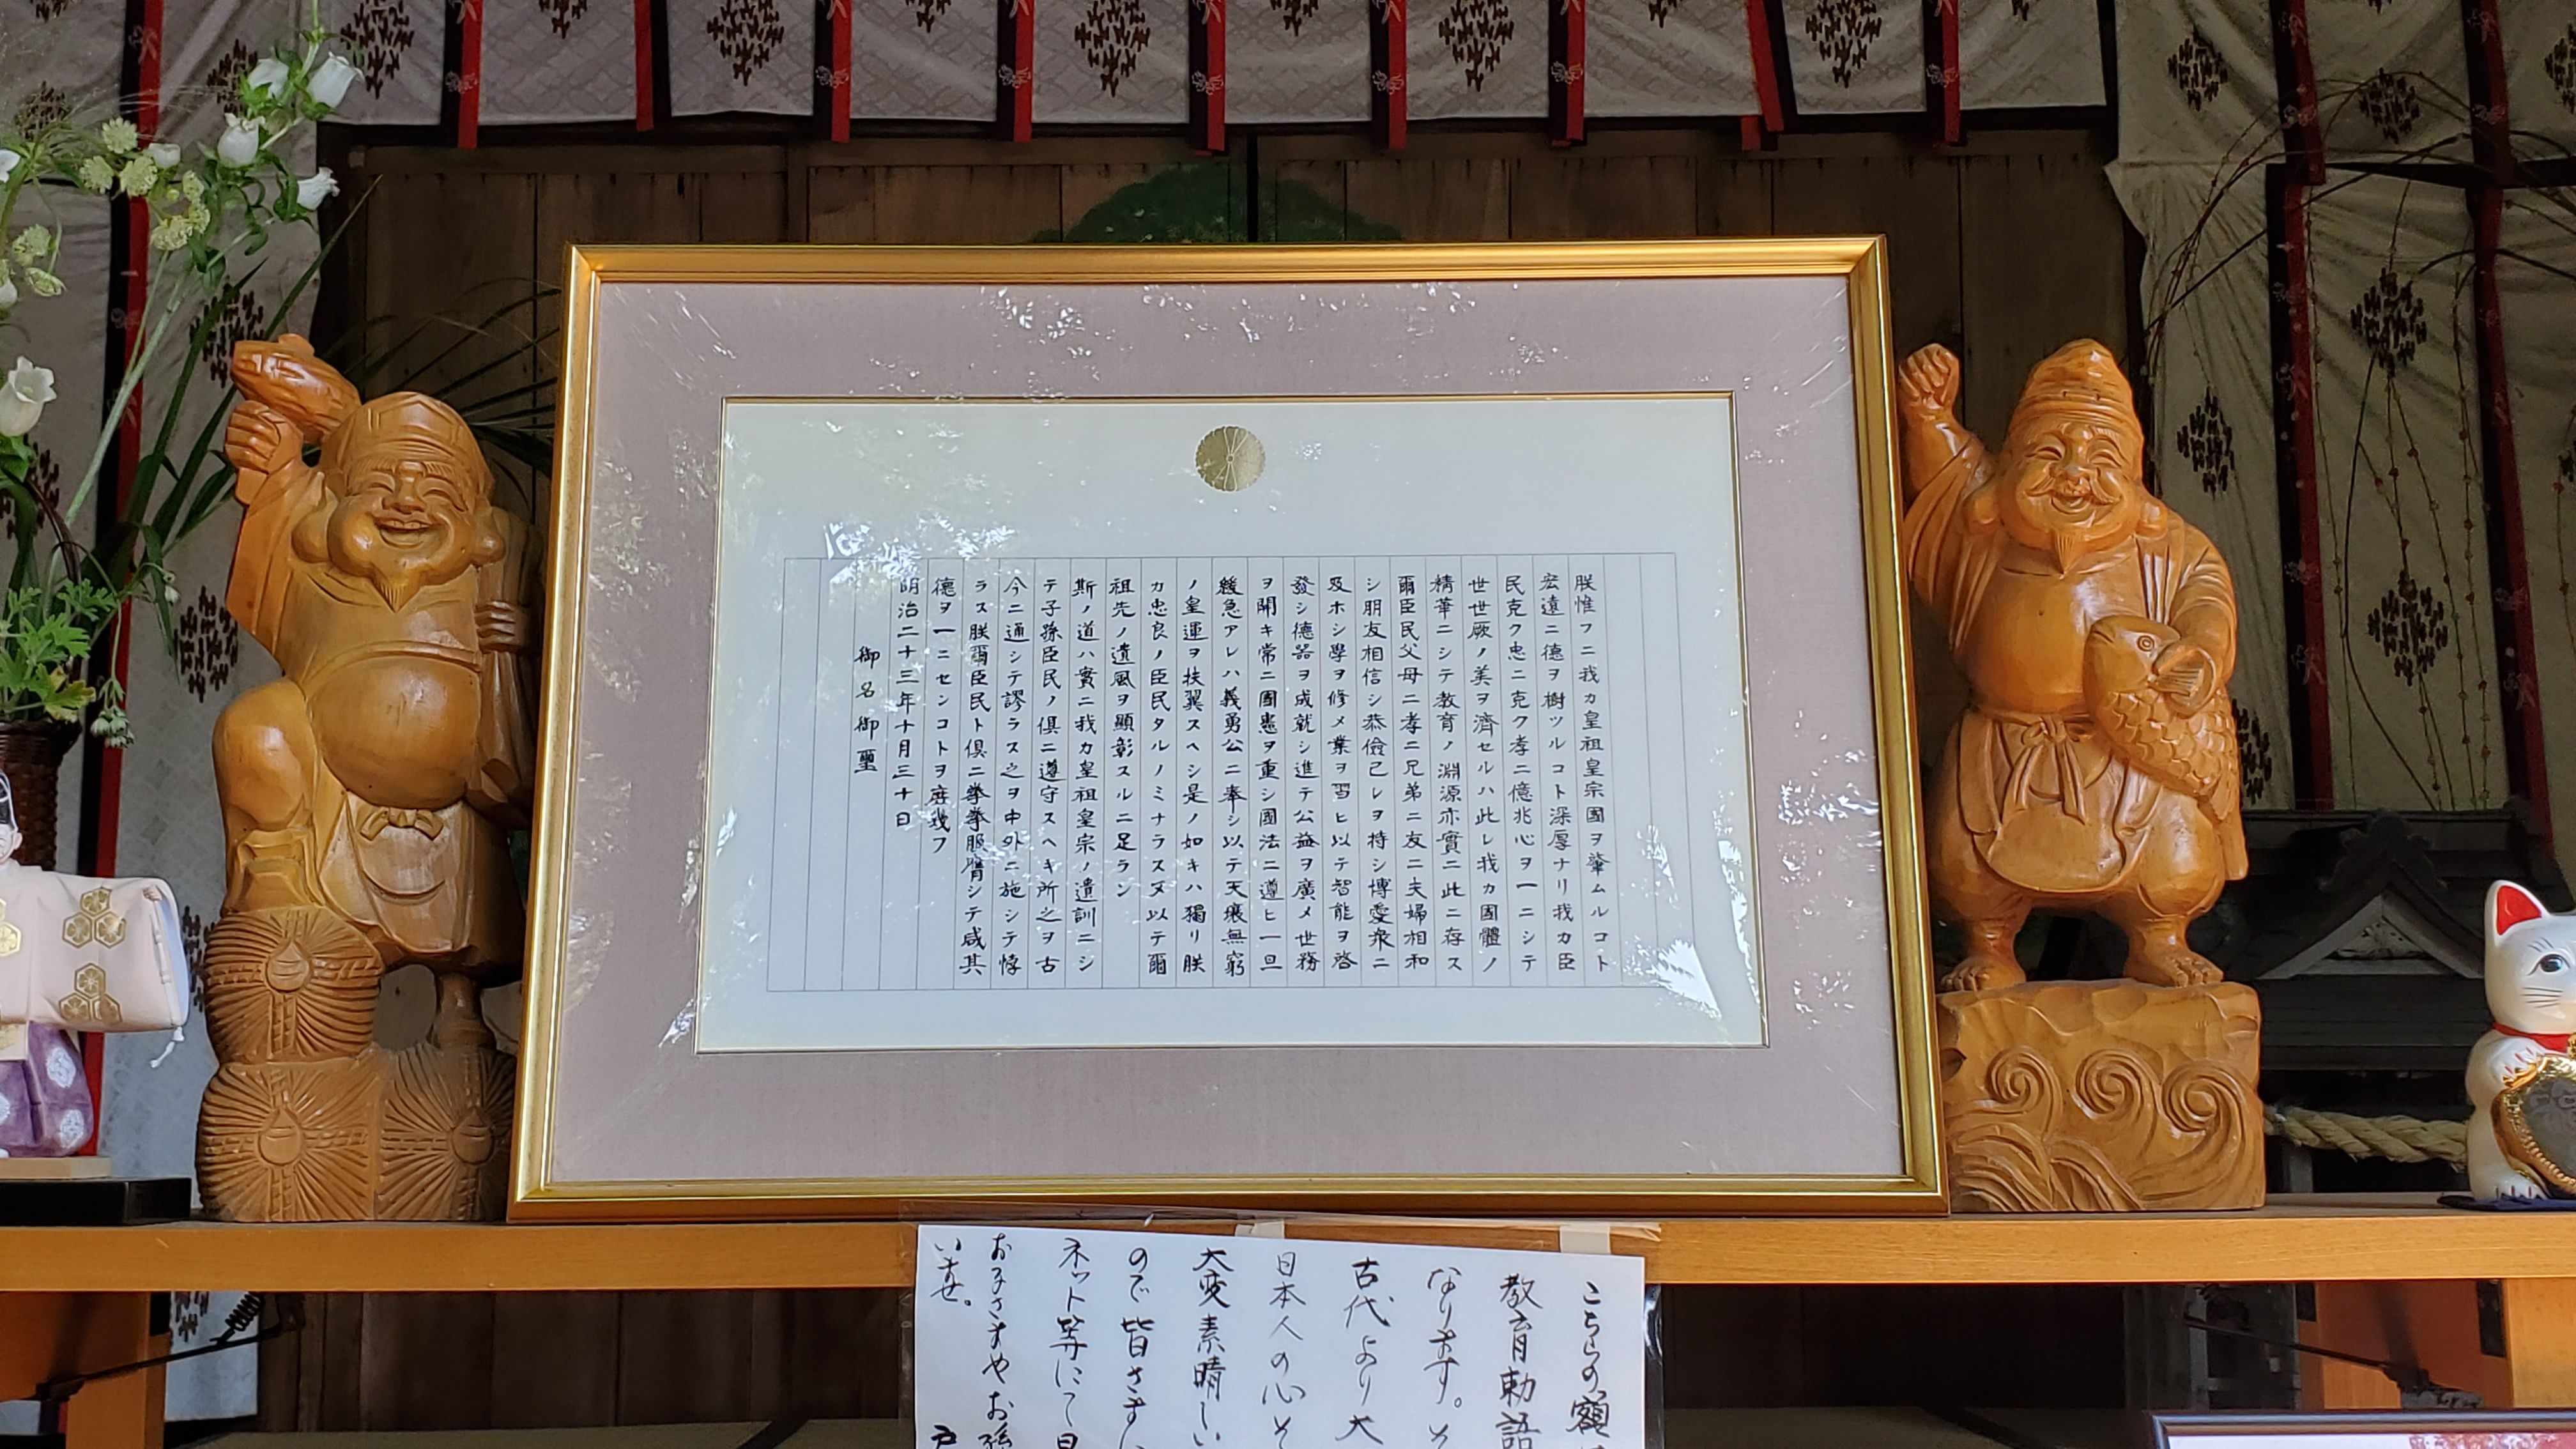 朕惟フニ我カ皇祖皇宗國ヲ肇ムルコト
宏遠ニ德ヲ樹ツルコト深厚ナリ我カ臣
民克ク忠ニ克ク孝ニ億兆心ヲ一ニシテ
世世厥ノ美ヲ濟セルハ此レ我カ國體ノ
精華ニシテ教育ノ淵源亦實ニ此ニ存ス
爾臣民父母ニ孝ニ兄弟ニ友ニ夫婦相和
シ朋友相信シ恭儉己レヲ持シ博愛衆ニ
及ホシ學ヲ修メ業ヲ習ヒ以テ智能ヲ啓
發シ德器ヲ成就シ進テ公益ヲ廣メ世務
ヲ開キ常ニ國憲ヲ重シ國法ニ遵ヒ一旦
緩急アレハ義勇公ニ奉シ以テ天壤無窮
ノ皇運ヲ扶翼スヘシ是ノ如キハ獨リ朕
カ忠良ノ臣民タルノミナラス又以テ爾
祖先ノ遺風ヲ顯彰スルニ足ラン
斯ノ道ハ實ニ我カ皇祖皇宗ノ遺訓ニシ
テ子孫臣民ノ俱ニ遵守スヘキ所之ヲ古
今ニ通シテ謬ラス之ヲ中外ニ施シテ悖
ラス朕爾臣民ト俱ニ拳拳服膺シテ咸其
德ヲ一ニセンコトヲ庶幾フ
明治二十三年十月三十日
御名御璽
こちらの額
教育勅語
なります。そ
古代より大
日本人の心そ
大変素晴しい
ので皆さまに
ネット等にて
お子さまやお孫
いませ。